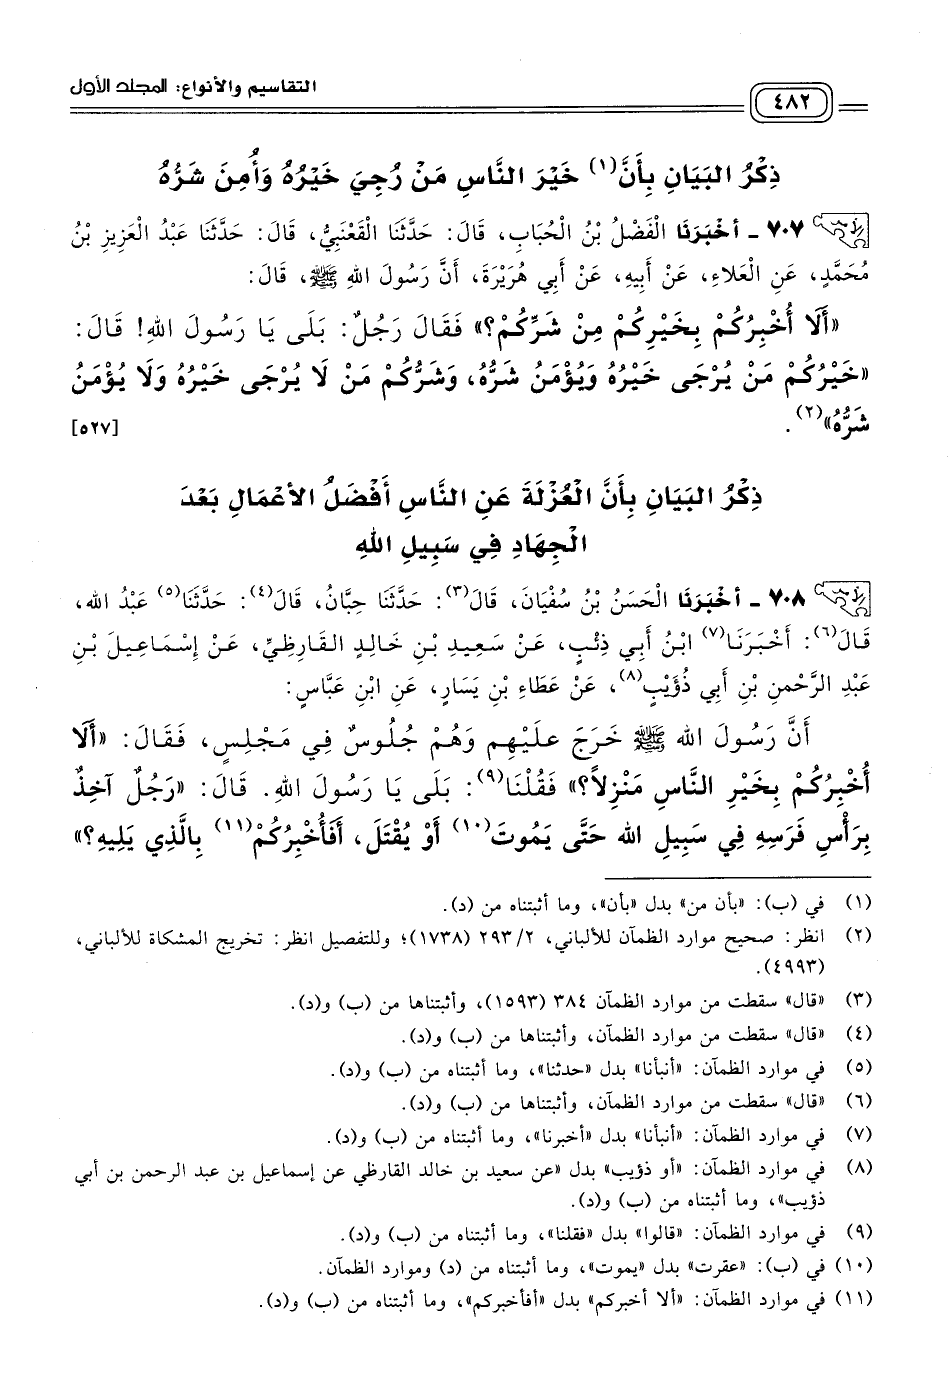 التقاسيم والأنواع: المجلد الأول
٤٨٢
ذِكْرُ البَيَانِ بِأَنَّ(١) خَيْرَ النَّاسِ مَنْ رُجِيَ خَيْرُهُ وَأُمِنَ شَرُّهُ
٧٠٧ - أَخْبَرَنَا الْفَضْلُ بْنُ الْحُبَابِ، قَالَ: حَدَّثَنَا الْقَعْنَبِيُّ، قَالَ: حَدَّثَنَا عَبْدُ الْعَزِيزِ بْنُ
مُحَمَّدٍ، عَنِ الْعَلَاءِ، عَنْ أَبِيهِ، عَنْ أَبِي هُرَيْرَةَ، أَنَّ رَسُولَ اللهِ ﷺ، قَالَ:
«أَلَا أُخْبِرُكُمْ بِخَيْرِكُمْ مِنْ شَرِّكُمْ؟» فَقَالَ رَجُلٌ: بَلَى يَا رَسُولَ اللهِ! قَالَ:
«خَيْرُكُمْ مَنْ يُرْجَى خَيْرُهُ وَيُؤْمَنُ شَرُّهُ، وَشَرُّكُمْ مَنْ لَا يُرْجَى خَيْرُهُ وَلَا يُؤْمَنُ
شَرُّهُ»(٢). [٥٢٧]
ذِكْرُ البَيَانِ بِأَنَّ الْعُزْلَةَ عَنِ النَّاسِ أَفْضَلُ الأَعْمَالِ بَعْدَ
الْجِهَادِ فِي سَبِيلِ اللهِ
٧٠٨ - أَخْبَرَنَا الْحَسَنُ بْنُ سُفْيَانَ، قَالَ(٣): حَدَّثَنَا حِبَّانُ، قَالَ(٤): حَدَّثَنَا(٥) عَبْدُ الله،
قَالَ(٦): أَخْبَرَنَا(٧) ابْنُ أَبِي ذِئْبٍ، عَنْ سَعِيدِ بْنِ خَالِدٍ القَارِظِيِّ، عَنْ إِسْمَاعِيلَ بْنِ
عَبْدِ الرَّحْمنِ بْنِ أَبِي ذُؤَيْبٍ(٨)، عَنْ عَطَاءِ بْنِ يَسَارٍ، عَنِ ابْنِ عَبَّاسٍ:
أَنَّ رَسُولَ الله ﷺ خَرَجَ عَلَيْهِم وَهُمْ جُلُوسٌ فِي مَجْلِسٍ، فَقَالَ: «أَلَا
أُخْبِرُكُمْ بِخَيْرِ النَّاسِ مَنْزِلاً؟» فَقُلْنَا(٩): بَلَى يَا رَسُولَ اللهِ. قَالَ: «رَجُلٌ آخِذٌ
بِرَأْسِ فَرَسِهِ فِي سَبِيلِ الله حَتَّى يَمُوتَ(١٠) أَوْ يُقْتَلَ، أَفَأُخْبِرُكُمْ(١١) بِالَّذِي يَلِيهِ؟»
(١) في (ب): «بأن من» بدل «بأن»، وما أثبتناه من (د).
(٢) انظر: صحيح موارد الظمآن للألباني، ٢/ ٢٩٣ (١٧٣٨)؛ وللتفصيل انظر: تخريج المشكاة للألباني،
(٤٩٩٣).
(٣) «قال» سقطت من موارد الظمآن ٣٨٤ (١٥٩٣)، وأثبتناها من (ب) و(د).
(٤) «قال» سقطت من موارد الظمآن، وأثبتناها من (ب) و(د).
(٥) في موارد الظمآن: «أنبأنا» بدل «حدثنا»، وما أثبتناه من (ب) و(د).
(٦) «قال» سقطت من موارد الظمآن، وأثبتناها من (ب) و(د).
(٧) في موارد الظمآن: «أنبأنا» بدل «أخبرنا»، وما أثبتناه من (ب) و(د).
(٨) في موارد الظمآن: «أو ذؤيب» بدل «عن سعيد بن خالد القارظي عن إسماعيل بن عبد الرحمن بن أبي
ذؤيب»، وما أثبتناه من (ب) و(د).
(٩) في موارد الظمآن: «قالوا» بدل «فقلنا»، وما أثبتناه من (ب) و(د).
(١٠) في (ب): «عقرت» بدل «يموت»، وما أثبتناه من (د) وموارد الظمآن.
(١١) في موارد الظمآن: «ألا أخبركم» بدل «أفأخبركم»، وما أثبتناه من (ب) و(د).